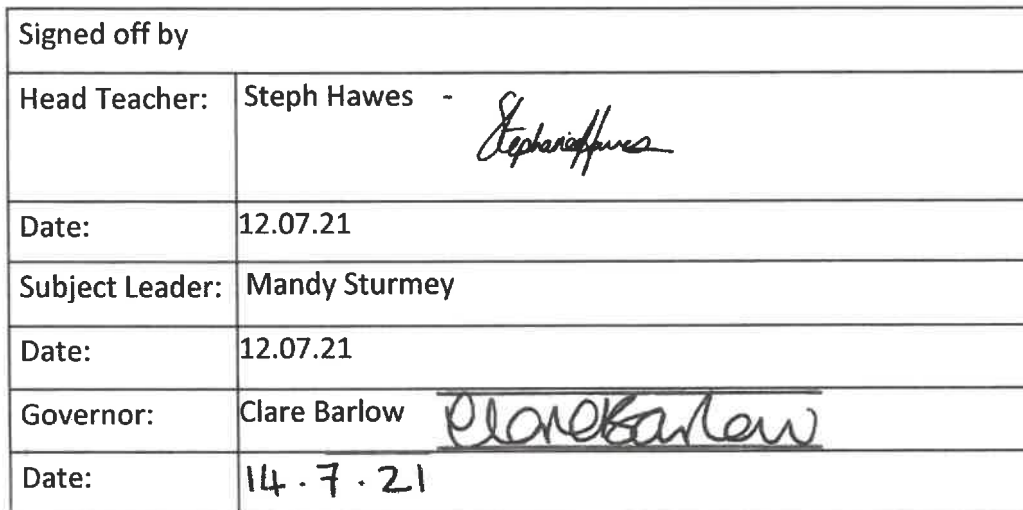 Signed off by
Head Teacher: Steph Hawes - Stephanie Hawes
Date: 12.07.21
Subject Leader: Mandy Sturmey
Date: 12.07.21
Governor: Clare Barlow Clare Barlow
Date: 14.7.21